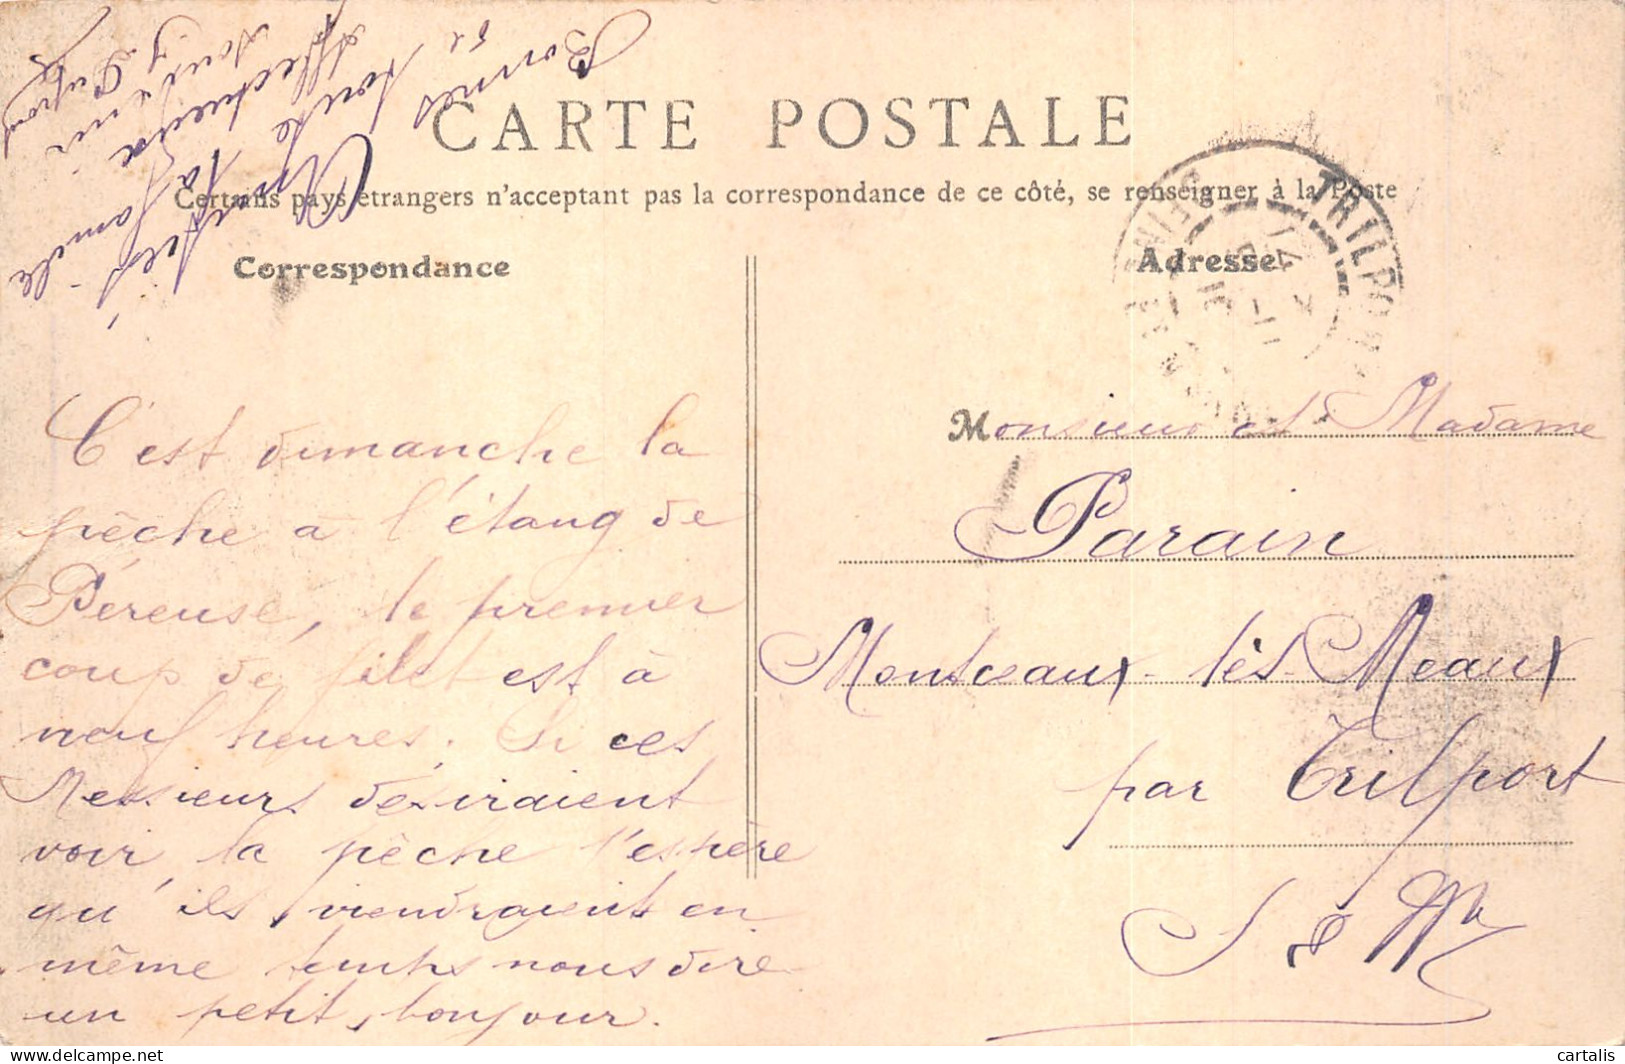 CARTE POSTALE
Certains pays étrangers n'acceptant pas la correspondance de ce côté, se renseigner à la Poste
Correspondance
Adresse
C'est dimanche la
pêche à l'étang de
Péreuse, le premier
coup de filet est à
neuf heures. Si ces
Messieurs désiraient
voir la pêche j'espère
qu'ils viendraient en
même temps nous dire
un petit bonjour.
Bonnes
de toute la famille
Affectueux
souvenir
Monsieur et Madame
Parain
Montceaux-lès-Meaux
par Trilport
S & M
TRILPORT
SEINE
delcampe.net
cartalis